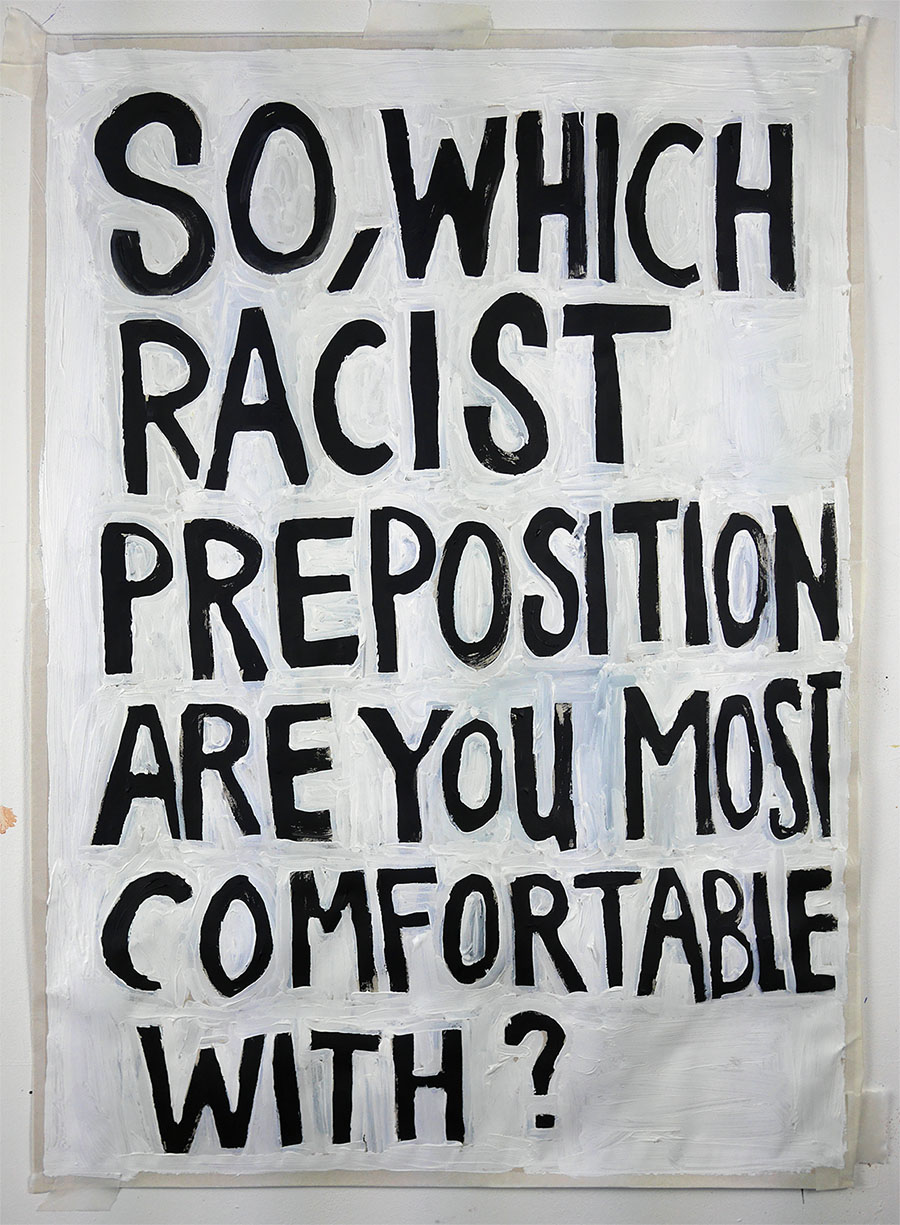 SO, WHICH
RACIST
PREPOSITION
ARE YOU MOST
COMFORTABLE
WITH?